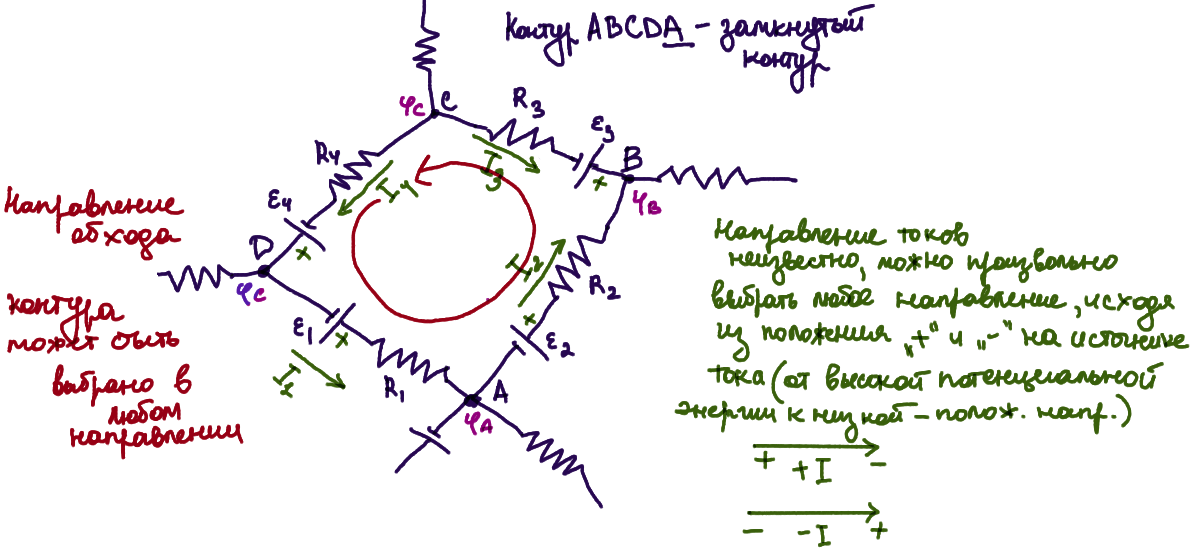 Контур ABCDA - замкнутый
контур
φc
C
R3
ε3
B
φB
I3
R4
I4
Направление
обхода
ε4
+
+
D
φc
I2
R2
ε2
+
ε1
+
R1
I1
A
φA
контура
может быть
выбрано в
любом
направлении
Направление токов
неизвестно, можно произвольно
выбрать любое направление, исходя
из положения „+" и „-" на источнике
тока (от высокой потенциальной
энергии к низкой - полож. напр.)
+ +I -
- -I +